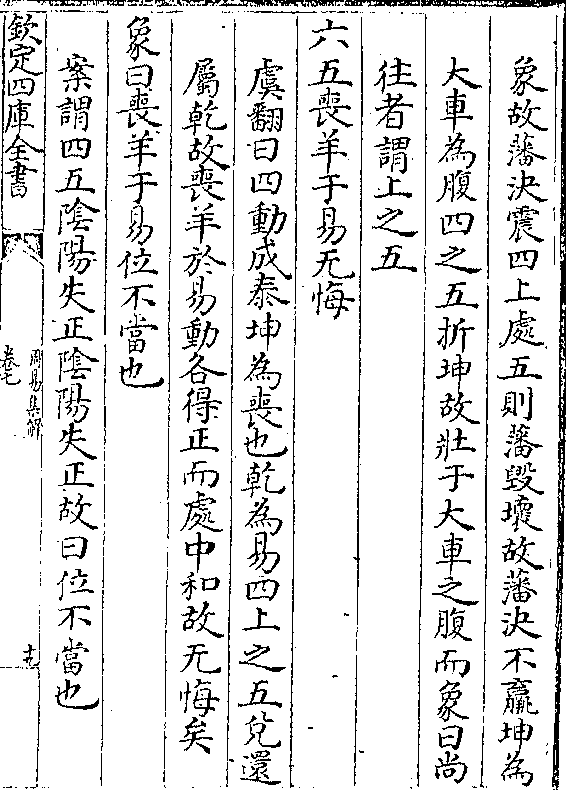 象故藩決震四上處五則藩毀壞故藩決不羸坤為
大車為腹四之五折坤故壯于大車之腹而象曰尚
往者謂上之五
六五喪羊于易无悔
虞翻曰四動成泰坤為喪也乾為易四上之五兌還
屬乾故喪羊於易動各得正而處中和故无悔矣
象曰喪羊于易位不當也
案謂四五陰陽失正陰陽失正故曰位不當也
欽定四庫全書
周易集解
卷七
十九